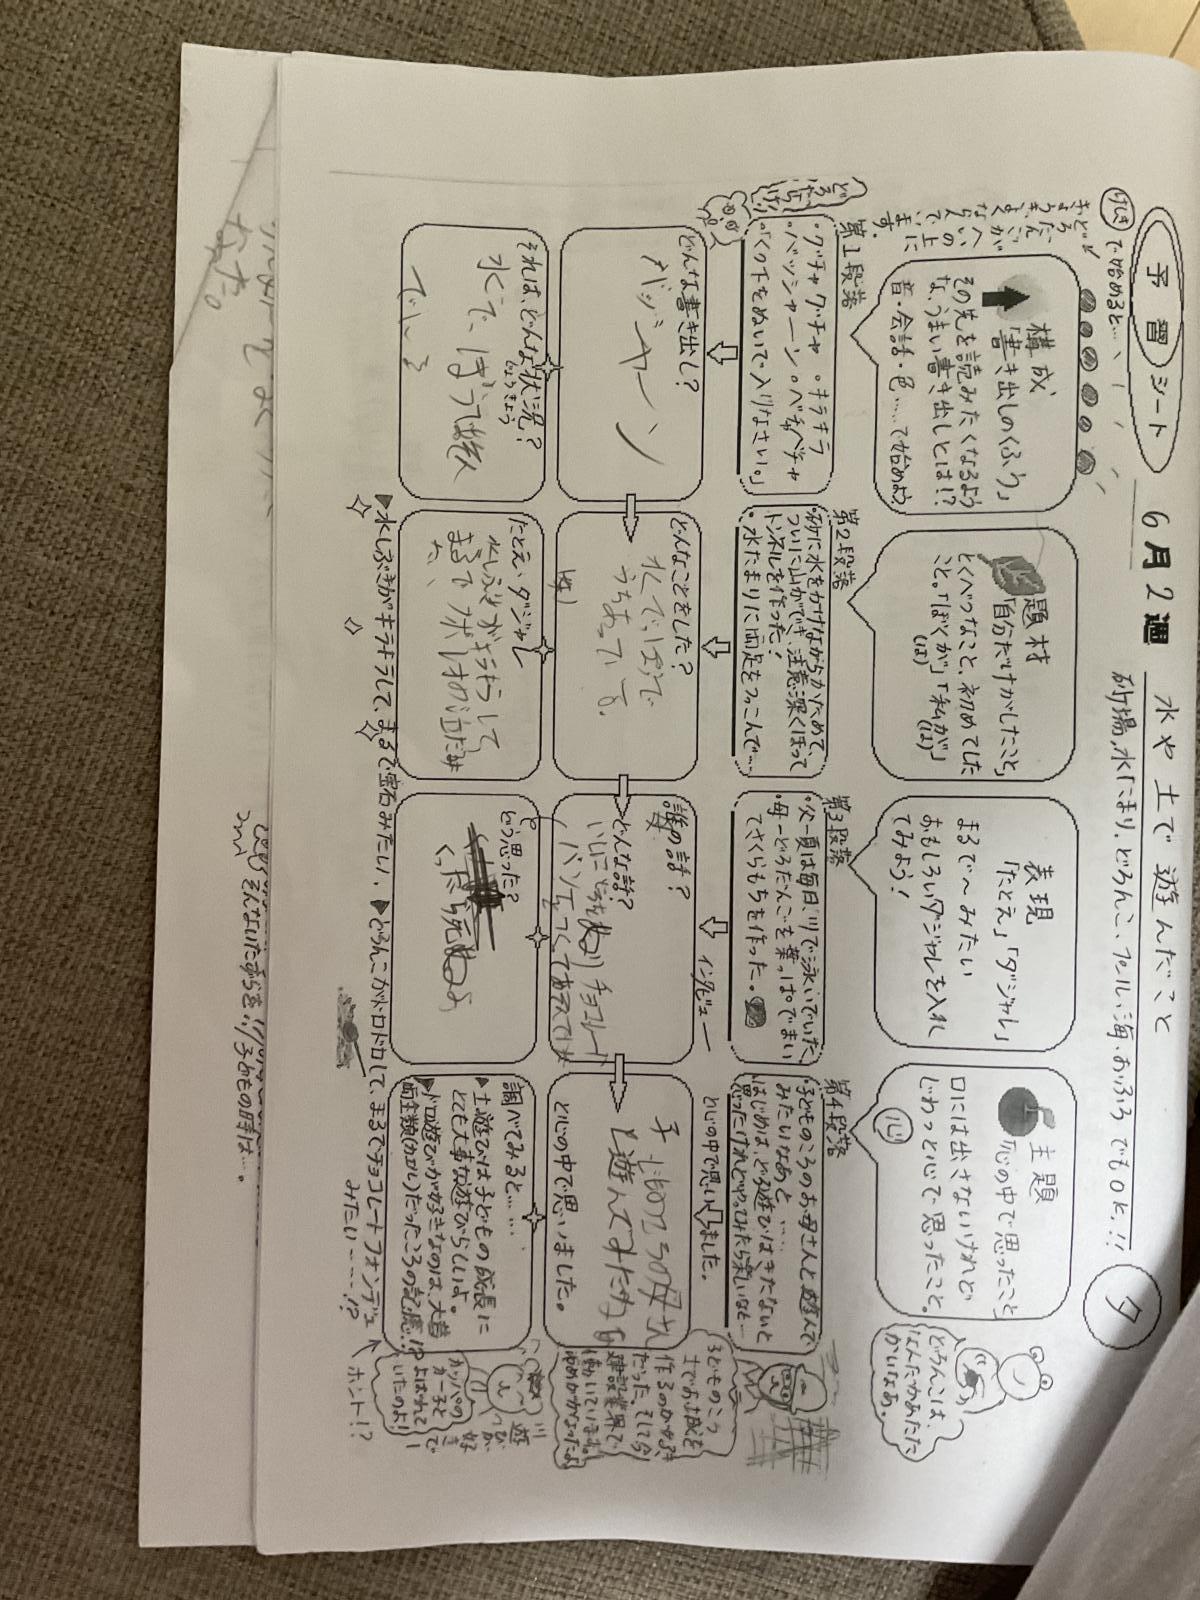 予習シート
6月2週
水や土で遊んだこと
砂場、水たまり、どろんこ、プール、海、おふろでもOK!!
夕
で始めると…
構成
「書き出しのくふう」
その先を読みたくなるよう
な、うまい書き出しとは!?
音・会話・色……で始めよう
題材
「自分だけがしたこと」
とくべつなこと、初めてした
こと。「ぼくが」「私が」
(は)
(は)
表現
「たとえ」「ダジャレ」
まるで〜みたい
おもしろいダジャレを入れ
てみよう!
主題
「心の中で思ったこと」
口には出さないけれど
じわっと心で思ったこと。
心
どろんこは、
なんだかあたた
かいなあ。
第1段落
・グチャグチャ・キラキラ
・バッシャーン。ベチャベチャ
・「くつ下をぬいで入りなさい。」
第2段落
・砂に水をかけながらかためて、
ついに山ができ、注意深くほって
トンネルを作った!
・水たまりに両足をつっこんで…
第3段落
・父―夏は毎日、川で泳いでいた
・母―どろだんごを葉っぱでまい
てさくらもちを作った。
第4段落
・子どものころのお母さんと遊んで
みたいなあと……
・はじめは、どろ遊びはきたないと
思ったけれどやってみたら楽しいなと…
インタビュー
と心の中で思いました。
どんな書き出し?
バッシャーン
どんなことをした?
水でっぽうで
誰の話?
母
どんな話?
子どものころの母さん
と遊んでみたいな
と心の中で思いました。
それは、どんな状況?
じょうきょう
たとえ・ダジャレ
水しぶきがキラキラして
まるで
どう思った?
くったら死ぬよ
調べてみると……
▶土遊びは子どもの成長に
とても大事な遊びらしいよ。
▶ドロ遊びが好きなのは、大昔
両生類(カエル)だったころの記憶!?
子どものころ
土でお城を
作るのが好き
だった。そして今
建設業界で
働いています。
ゆめがかなったよ
川遊びが好きで
カッパの
カー子と
よばれて
いたのよ!
ホント!?
▶水しぶきがキラキラして、まるで宝石みたい、
▶どろんこがドロドロして、まるでチョコレートフォンデュ
みたい……!?